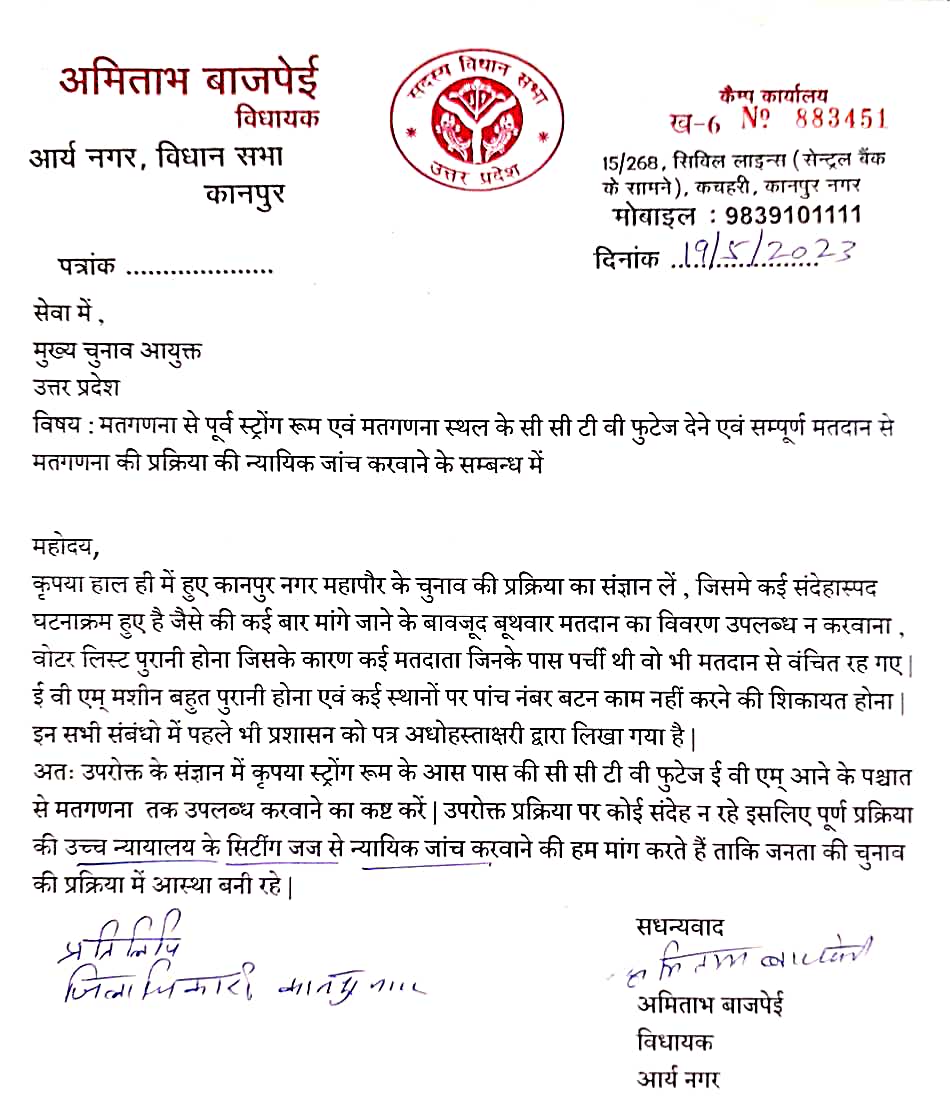 अमिताभ बाजपेई
विधायक
आर्य नगर, विधान सभा
कानपुर
सदस्य विधान सभा
उत्तर प्रदेश
कैम्प कार्यालय
ख-6 Nº 883451
15/268, सिविल लाइन्स (सेन्ट्रल बैंक
के सामने), कचहरी, कानपुर नगर
मोबाइल : 9839101111
पत्रांक .....................
दिनांक 19/5/2023
सेवा में ,
मुख्य चुनाव आयुक्त
उत्तर प्रदेश
विषय : मतगणना से पूर्व स्ट्रोंग रूम एवं मतगणना स्थल के सी सी टी वी फुटेज देने एवं सम्पूर्ण मतदान से
मतगणना की प्रक्रिया की न्यायिक जांच करवाने के सम्बन्ध में
महोदय,
कृपया हाल ही में हुए कानपुर नगर महापौर के चुनाव की प्रक्रिया का संज्ञान लें , जिसमे कई संदेहास्पद
घटनाक्रम हुए है जैसे की कई बार मांगे जाने के बावजूद बूथवार मतदान का विवरण उपलब्ध न करवाना ,
वोटर लिस्ट पुरानी होना जिसके कारण कई मतदाता जिनके पास पर्ची थी वो भी मतदान से वंचित रह गए |
ई वी एम् मशीन बहुत पुरानी होना एवं कई स्थानों पर पांच नंबर बटन काम नहीं करने की शिकायत होना |
इन सभी संबंधो में पहले भी प्रशासन को पत्र अधोहस्ताक्षरी द्वारा लिखा गया है |
अतः उपरोक्त के संज्ञान में कृपया स्ट्रोंग रूम के आस पास की सी सी टी वी फुटेज ई वी एम् आने के पश्चात
से मतगणना तक उपलब्ध करवाने का कष्ट करें | उपरोक्त प्रक्रिया पर कोई संदेह न रहे इसलिए पूर्ण प्रक्रिया
की उच्च न्यायालय के सिटींग जज से न्यायिक जांच करवाने की हम मांग करते हैं ताकि जनता की चुनाव
की प्रक्रिया में आस्था बनी रहे |
प्रतिलिपि
जिलाधिकारी कानपुर नगर
सधन्यवाद
अमिताभ बाजपेई
अमिताभ बाजपेई
विधायक
आर्य नगर